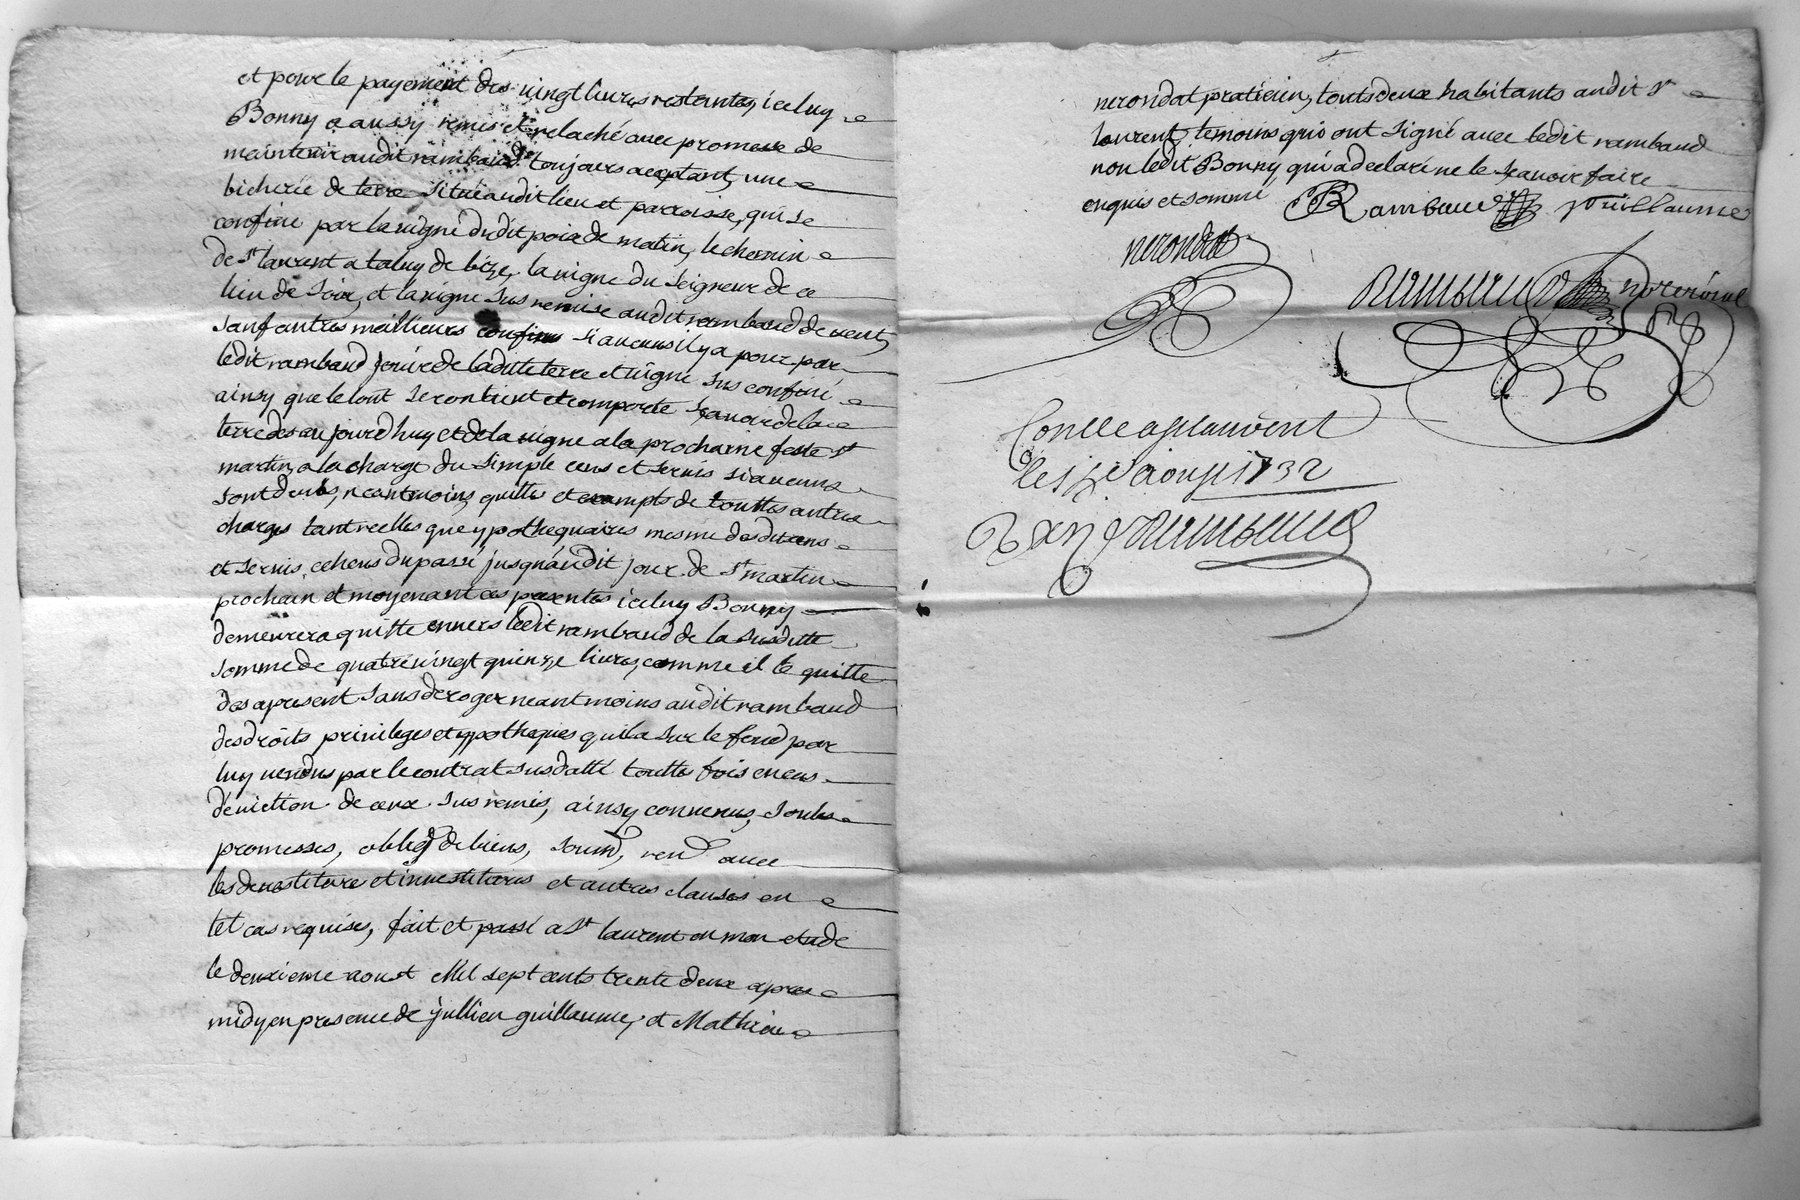 et pour le payement des vingt livres restantes, iceluy
Bonny a aussy remis et relaché avec promesse de
maintenir audit rambaud toujours aceptant, une
bicherée de terre située audit lieu et parroisse, qui se
confine par la vigne dudit poix de matin, le chemin
de St laurent a taluy de bize, la vigne du seigneur de ce
lieu de soir, et la vigne sus remise audit rambaud de vent,
sauf autres meillieurs confins si aucuns il y a pour par
ledit rambaud jouir de laditte terre et vigne sus confiné
ainsy que le tout se contient et comporte scavoir de la
terre des aujourd huy et de la vigne a la prochaine feste St
martin, a la charge du simple cens et servis si aucuns
sont deubs, neantmoins quitte et exampts de touttes autres
charges tant reelles que ypothequaires mesme desdit cens
et servis echeus du passé jusqu'audit jour de St martin
prochain et moyenant ces presentes iceluy Bonny
demeurera quitte envers ledit rambaud de la susditte
somme de quatre vingt quinze livres, comme il le quitte
des apresent sans deroger neantmoins audit rambaud
des droits privileges et ypotheques quila sur le fond par
luy vendus par le contrat susdatté touttes fois en cas
d'eviction de ceux sus remis, ainsy convenus, soubs
promesses, oblig de biens, soum, ren avec
les devestiture et investitures et autres clauses en
tel cas requises, fait et passé a St laurent en mon etude
le deuxieme aoust Mil sept cents trente deux apres
midy en presence de jullien guillaume, et Mathieu
nerondat praticien, touts deux habitants audit St
laurent, temoins qui ont signé avec ledit rambaud
non ledit Bonny qui a declaré ne le scavoir faire
enquis et sommé Rambaud guillaume
nerondat
Rambaud
Conllé a St laurent
le aoust 1732
Rambaud